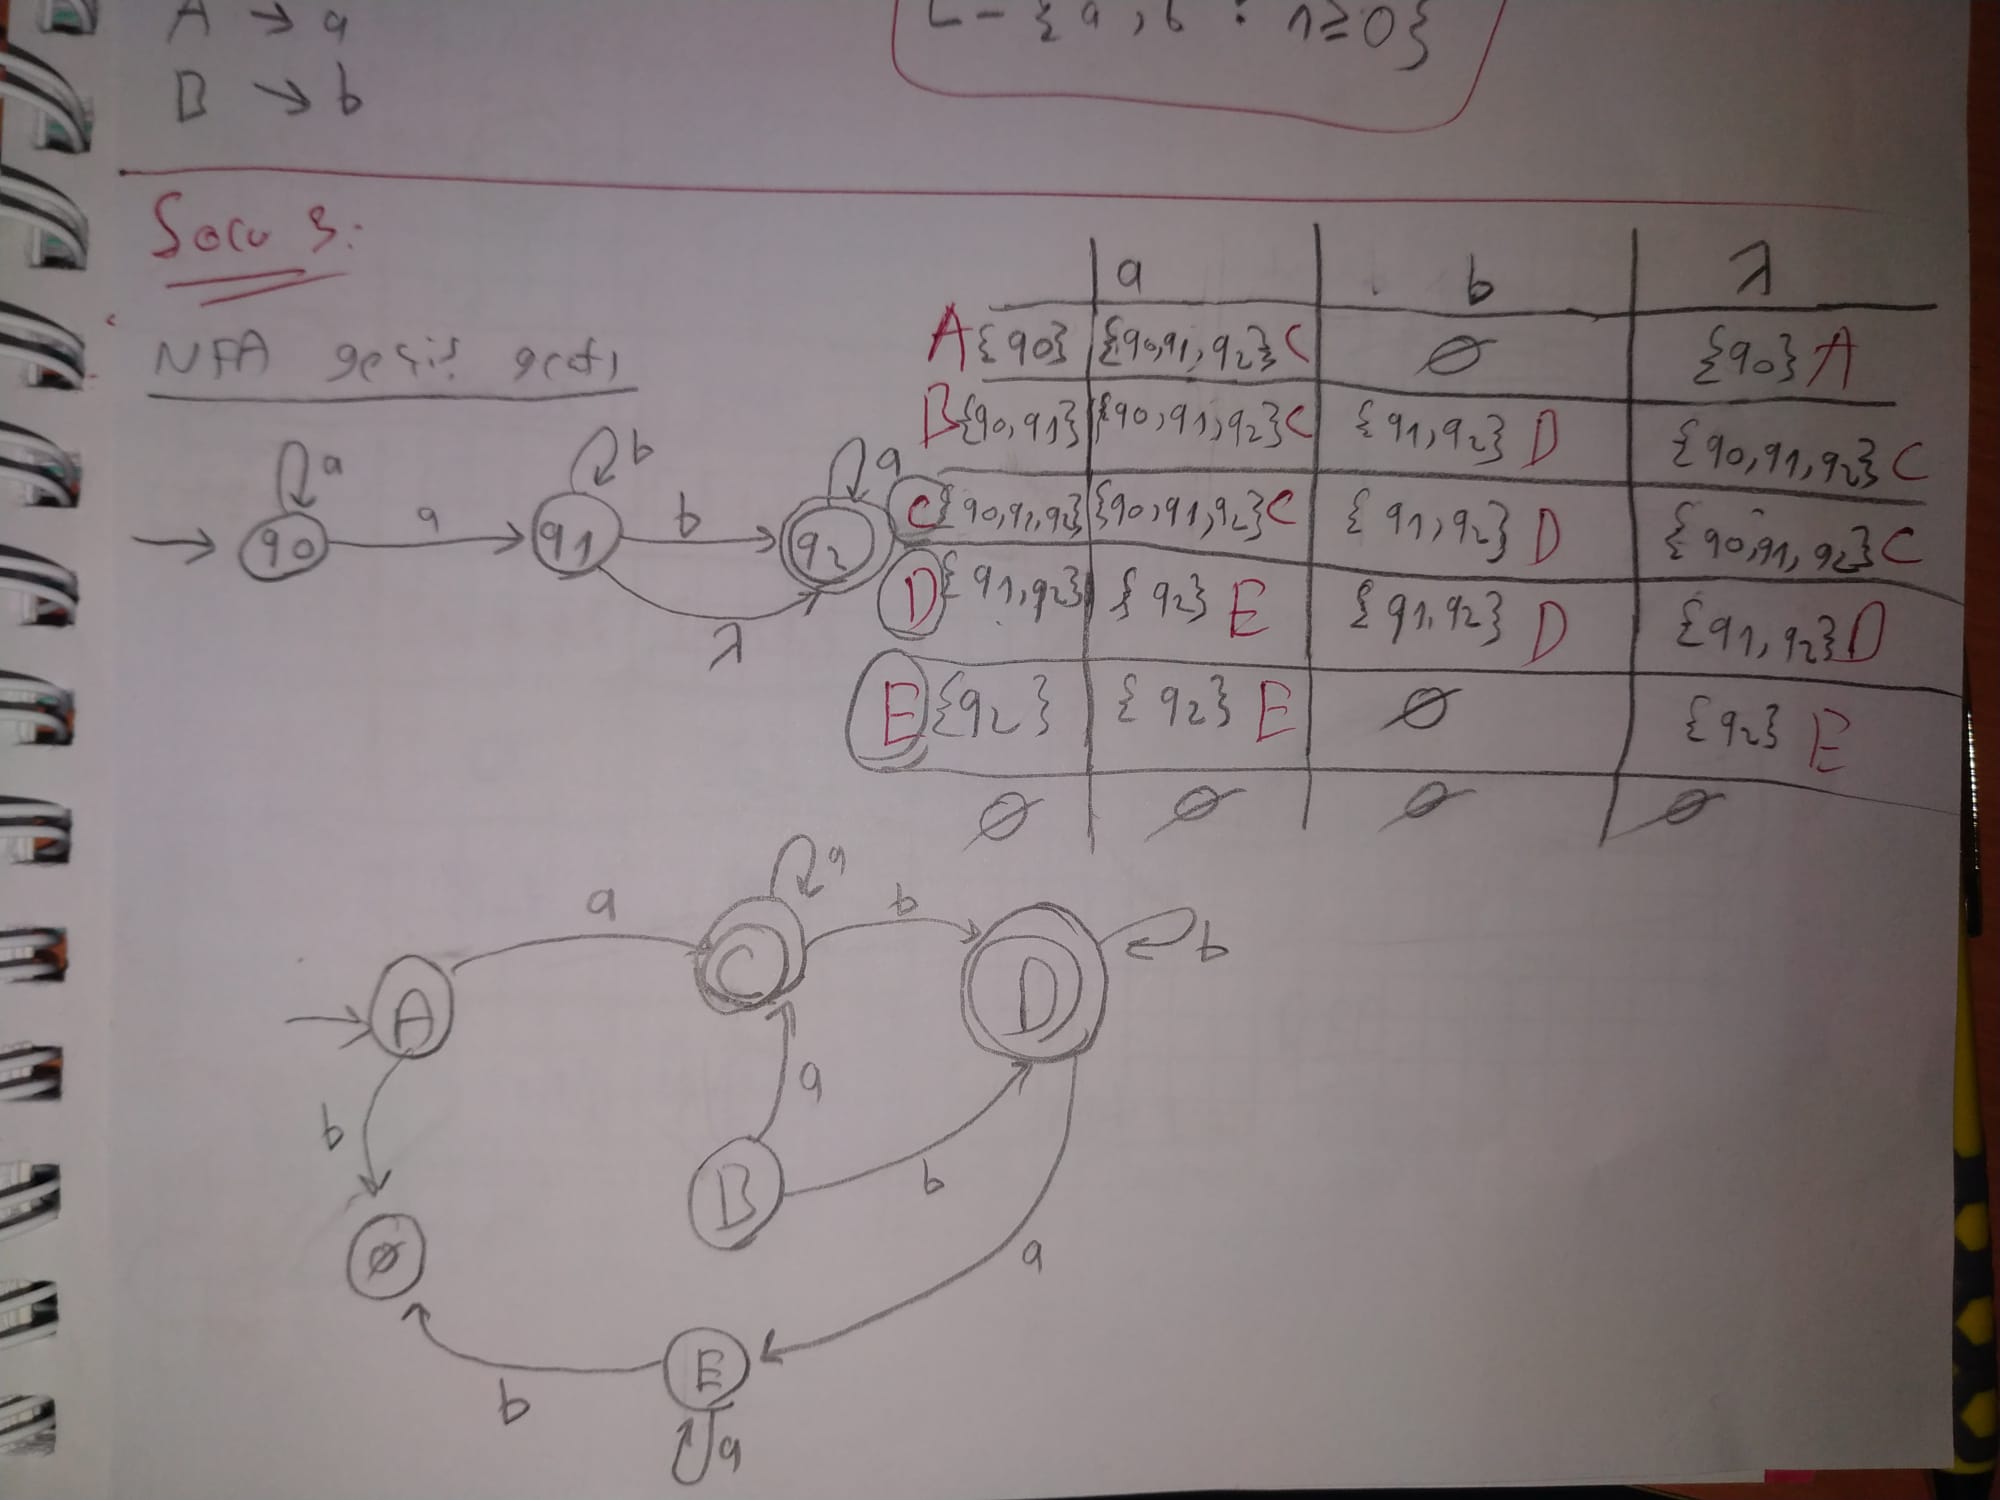 A → a
B → b
L = {a , b : n ≥ 0}
Soru 3:
NFA geçiş grafı
q0 a a q1 b b λ q2 a
a b λ
A {q0} {q0,q1,q2} C ∅ {q0} A
B {q0,q1} {q0,q1,q2} C {q1,q2} D {q0,q1,q2} C
C {q0,q1,q2} {q0,q1,q2} C {q1,q2} D {q0,q1,q2} C
D {q1,q2} {q2} E {q1,q2} D {q1,q2} D
E {q2} {q2} E ∅ {q2} E
∅ ∅ ∅ ∅
a
a b
A C D b
b a
B b
∅ a
E
b
a